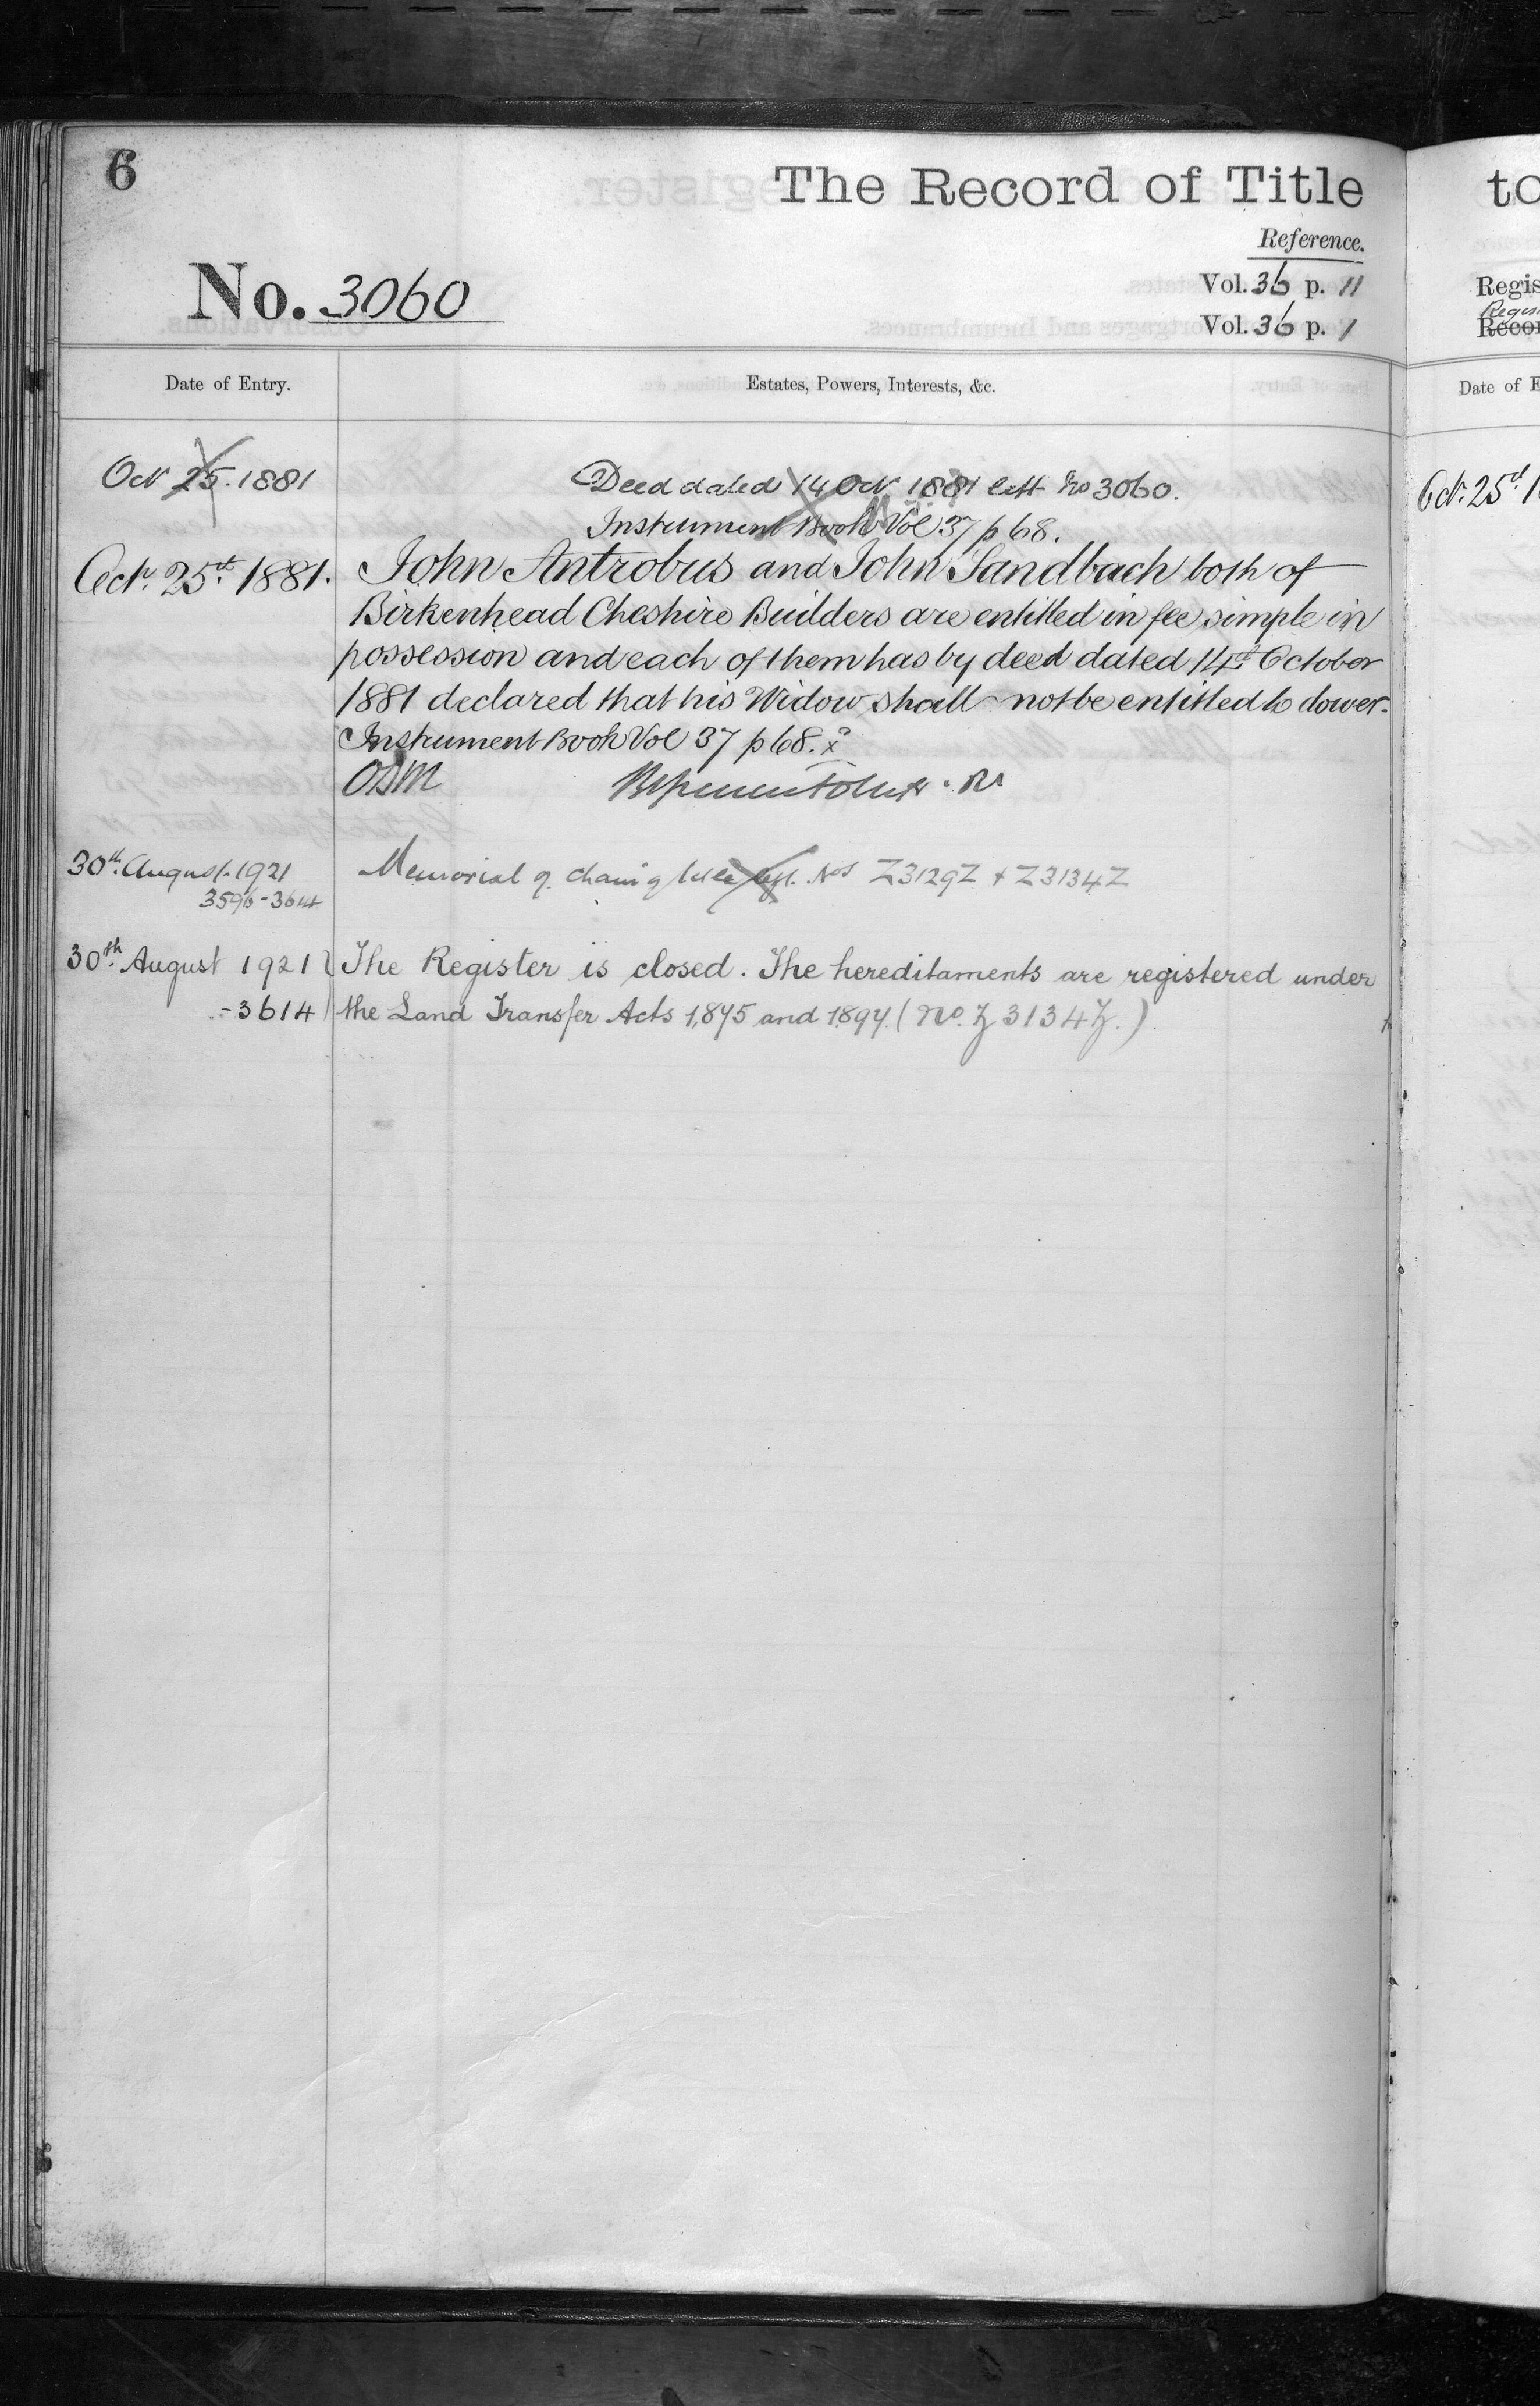 6
The Record of Title
Reference.
No. 3060
Vol. 36 p. 11
Vol. 36 p. 1
Date of Entry.
Estates, Powers, Interests, &c.
Oct 25. 1881
Deed dated 14 Oct 1881 left No 3060.
Instrument Book Vol 37 p 68.
Oct. 25th 1881.
John Antrobus and John Sandbach both of
Birkenhead Cheshire Builders are entitled in fee simple in
possession and each of them has by deed dated 14th October
1881 declared that his Widow shall not be entitled to dower.
Instrument Book Vol 37 p 68.
30th August 1921
3596-3614
Memorial of chain of title left. Nos Z3129Z + Z3134Z
30th August 1921
-3614
The Register is closed. The hereditaments are registered under
the Land Transfer Acts 1875 and 1897 (No. Z3134Z.)
to
Regis
Recor
Date of E
Oct. 25th 1